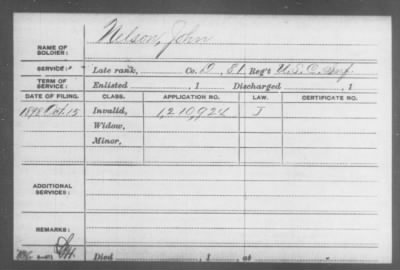 Nelson, John
NAME OF SOLDIER:
SERVICE: Late rank, Co. D, 81 Reg't U.S.C. Inf.
TERM OF SERVICE: Enlisted , 1 Discharged , 1
DATE OF FILING. CLASS. APPLICATION NO. LAW. CERTIFICATE NO.
1898 Oct. 15 Invalid, 1,210,924 J
Widow,
Minor,
ADDITIONAL SERVICES:
REMARKS:
Died , 1 , at